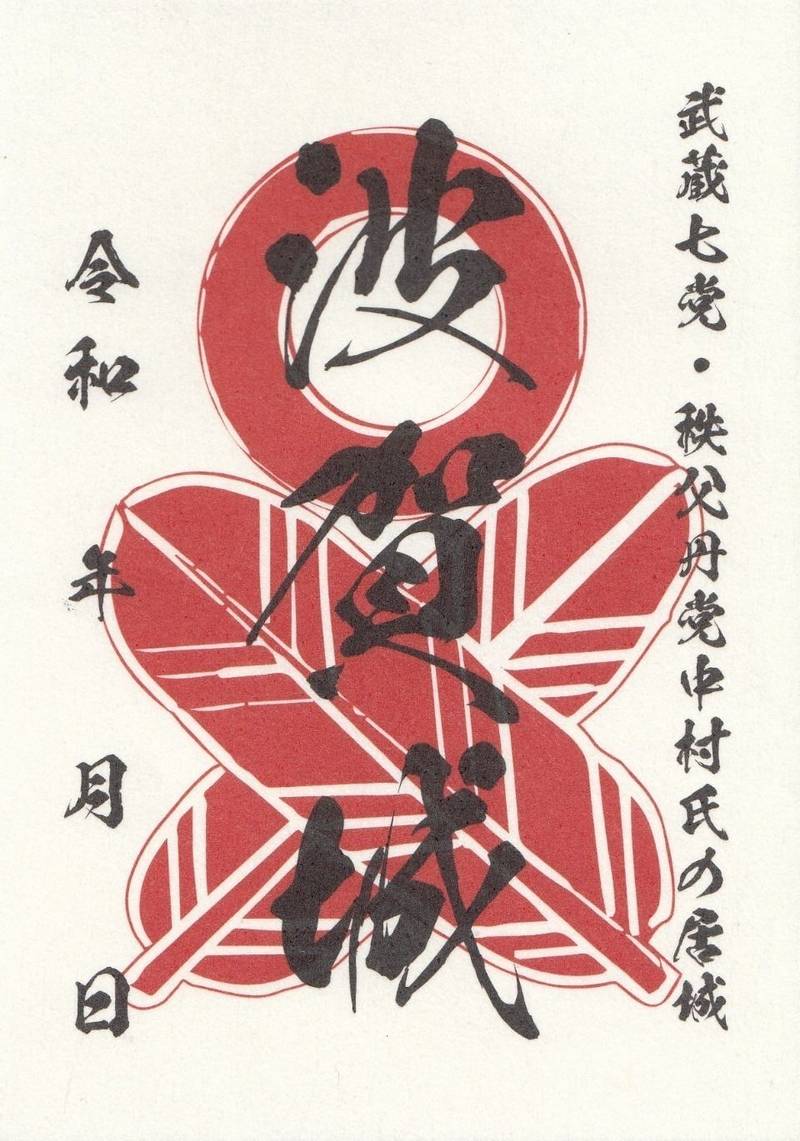 武蔵七党・秩父丹党中村氏の居城
波賀城
令和 年 月 日